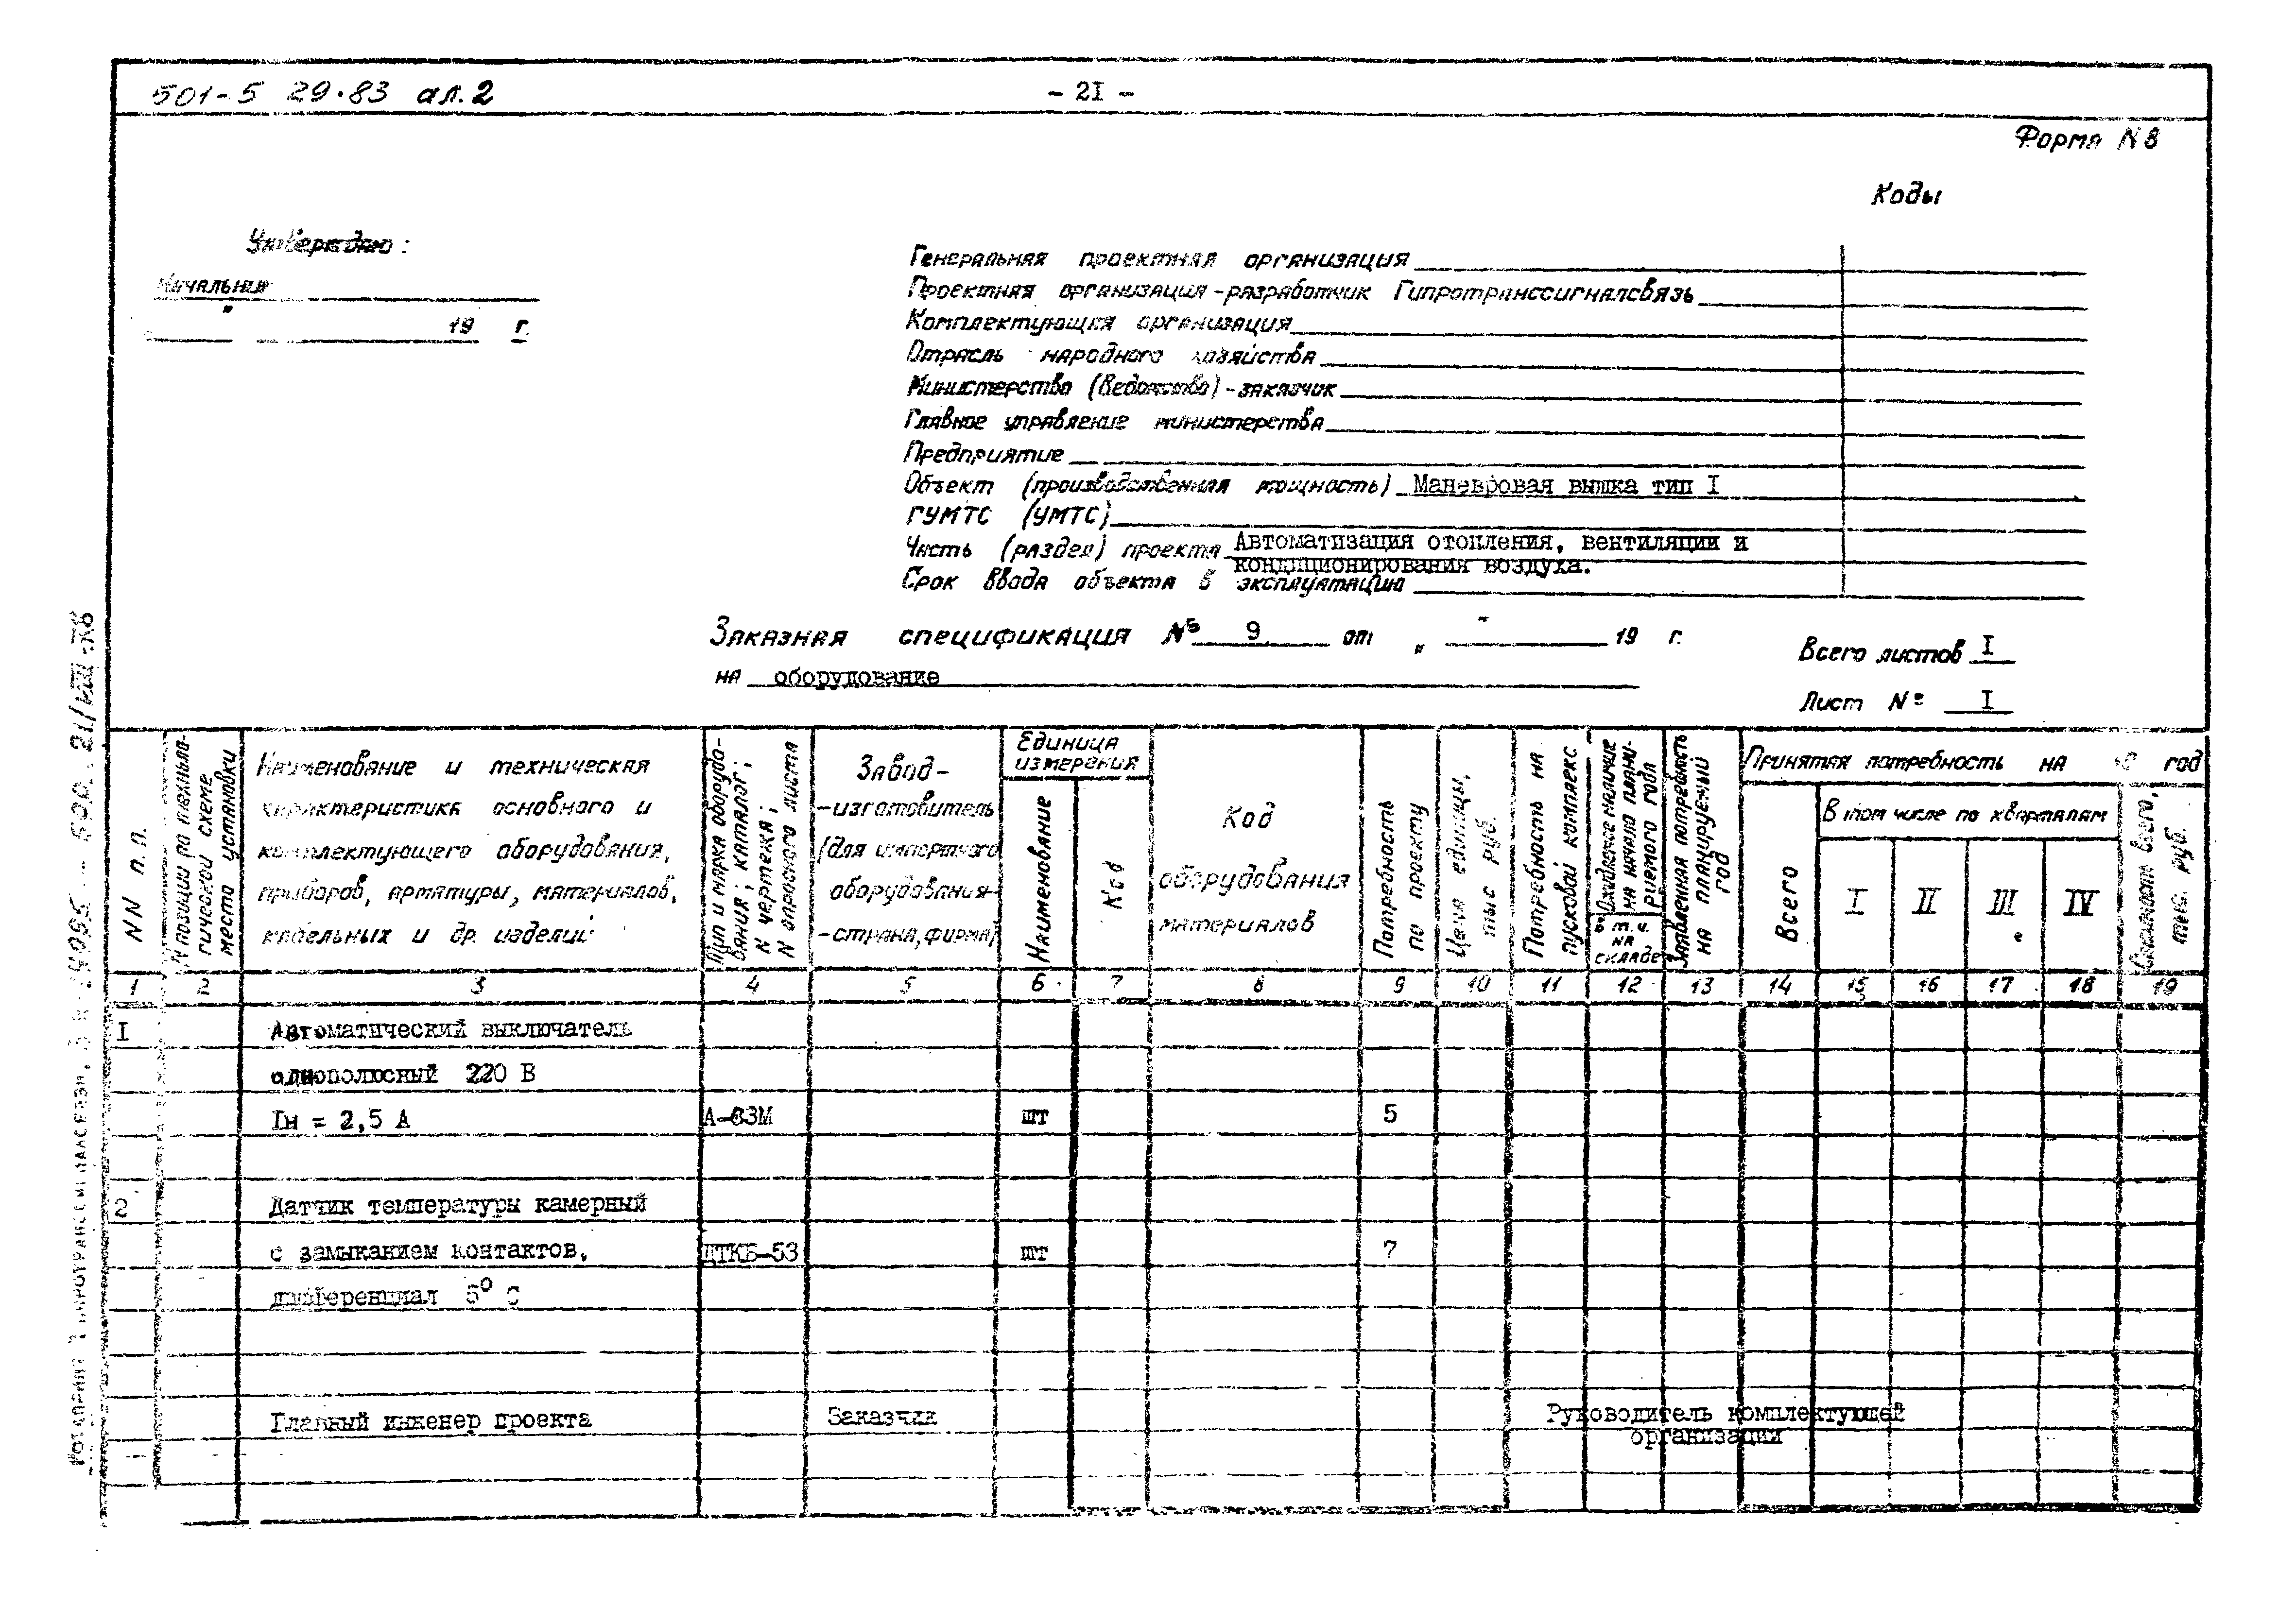 501-5 29.83 ал.2
- 2I -
Форма N 8
Коды
Утверждаю:
Начальник
"
19 г.
Генеральная проектная организация
Проектная организация-разработчик Гипротранссигналсвязь
Комплектующая организация
Отрасль народного хозяйства
Министерство (Ведомство)-заказчик
Главное управление министерства
Предприятие
Объект (производственная мощность) Маневровая вышка тип I
ГУМТС (УМТС)
Часть (раздел) проекта Автоматизация отопления, вентиляции и
кондиционирования воздуха.
Срок ввода объекта в эксплуатацию
Заказная спецификация № 9 от „ " 19 г.
на оборудование
Всего листов I
Лист № I
NN п.п.
N позиции по техноло-
гической схеме
место установки
Наименование и техническая
характеристика основного и
комплектующего оборудования,
приборов, арматуры, материалов,
кабельных и др. изделий
Тип и марка оборудо-
вания; каталог;
N чертежа;
N опросного листа
Завод-
-изготовитель
(для импортного
оборудования-
-страна, фирма)
Единица
измерения
Наименование
Код
Код
оборудования
материалов
Потребность
по проекту
Цена единицы,
тыс руб.
Потребность на
пусковой комплекс
Ожидаемое наличие
на начало плани-
руемого года
в т.ч.
на
складе
Заявленная потребность
на планируемый
год
Принятая потребность на год
Всего
В том числе по кварталам
I II III IV
Стоимость всего,
тыс. руб.
1 2 3 4 5 6 7 8 9 10 11 12 13 14 15 16 17 18 19
I Автоматический выключатель
однополюсный 220 В
Iн = 2,5 А А-63М шт 5
2 Датчик температуры камерный
с замыканием контактов, ДТКБ-53 шт 7
дифференциал 5° С
Главный инженер проекта Заказчик Руководитель комплектующей
организации